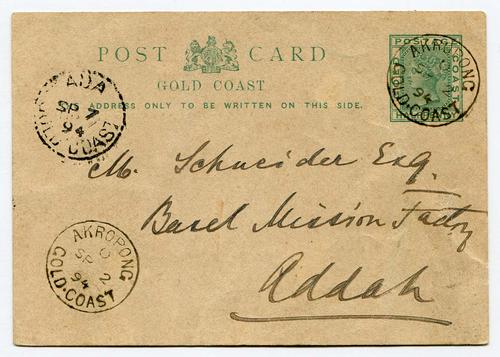 POST CARD
GOLD COAST
ADDRESS ONLY TO BE WRITTEN ON THIS SIDE.
AKROPONG
C
SP 2
94
GOLD·COAST
ADA
SP 7
94
GOLD COAST
M. Schneider Esq.
Basel Mission Factory
Addah
AKROPONG
C
SP 2
94
GOLD·COAST